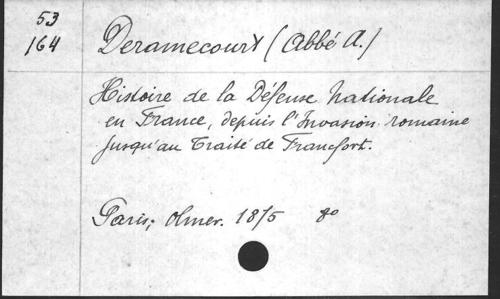 53
164
Deramecourt (Abbé A.)
Histoire de la Défense Nationale
en France, depuis l'Invasion romaine
jusqu'au Traité de Francfort.
Paris; Olmer. 1875 8o